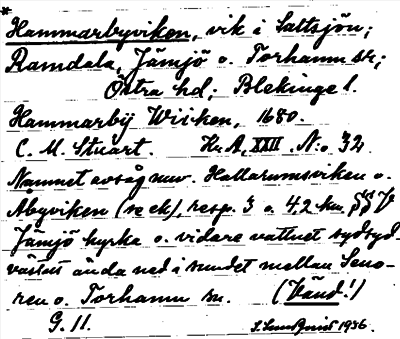 *
Hammarbyviken, vik i Saltsjön;
Ramdala, Jämjö o. Torhamn sn;
Östra hd; Blekinge l.
Hammarbÿ Wiiken, 1680.
C. M. Stuart Kr. A, XXII. N:o 32
Namnet avsåg nuv. Hallarumsviken o.
Åbyviken (se ek), resp. 3 o. 4,2 km SSV
Jämjö kyrka o. vidare vattnet sydsyd-
västut ända ned i sundet mellan Seno-
ren o. Torhamn sn. (Vänd!)
G. 11. 1936.